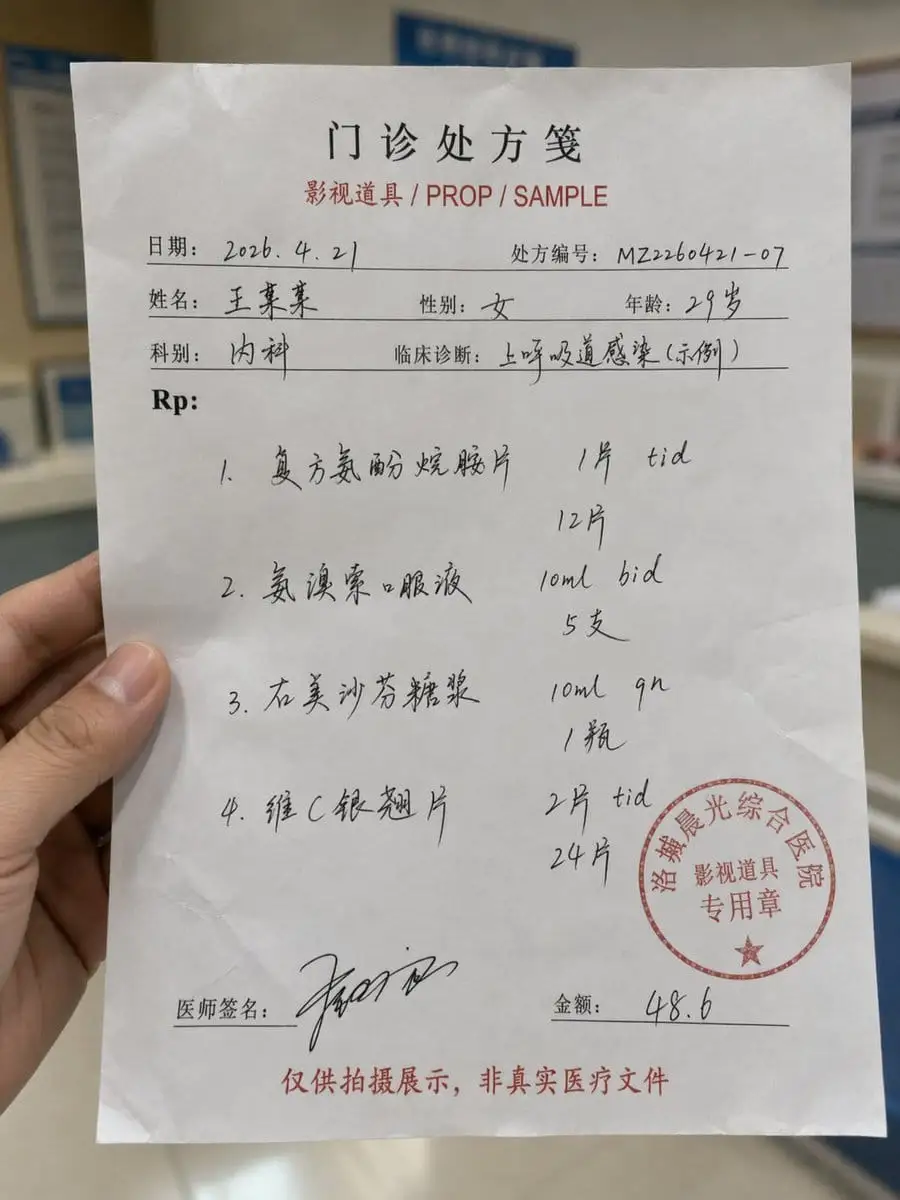 门诊处方笺
影视道具 / PROP / SAMPLE
日期: 2026.4.21 处方编号: MZ2260421-07
姓名: 王某某 性别: 女 年龄: 29岁
科别: 内科 临床诊断: 上呼吸道感染(示例)
Rp:
1. 复方氨酚烷胺片 1片 tid
12片
2. 氨溴索口服液 10ml bid
5支
3. 右美沙芬糖浆 10ml qn
1瓶
4. 维C银翘片 2片 tid
24片
洛城晨光综合医院
影视道具
专用章
医师签名:
金额: 48.6
仅供拍摄展示，非真实医疗文件